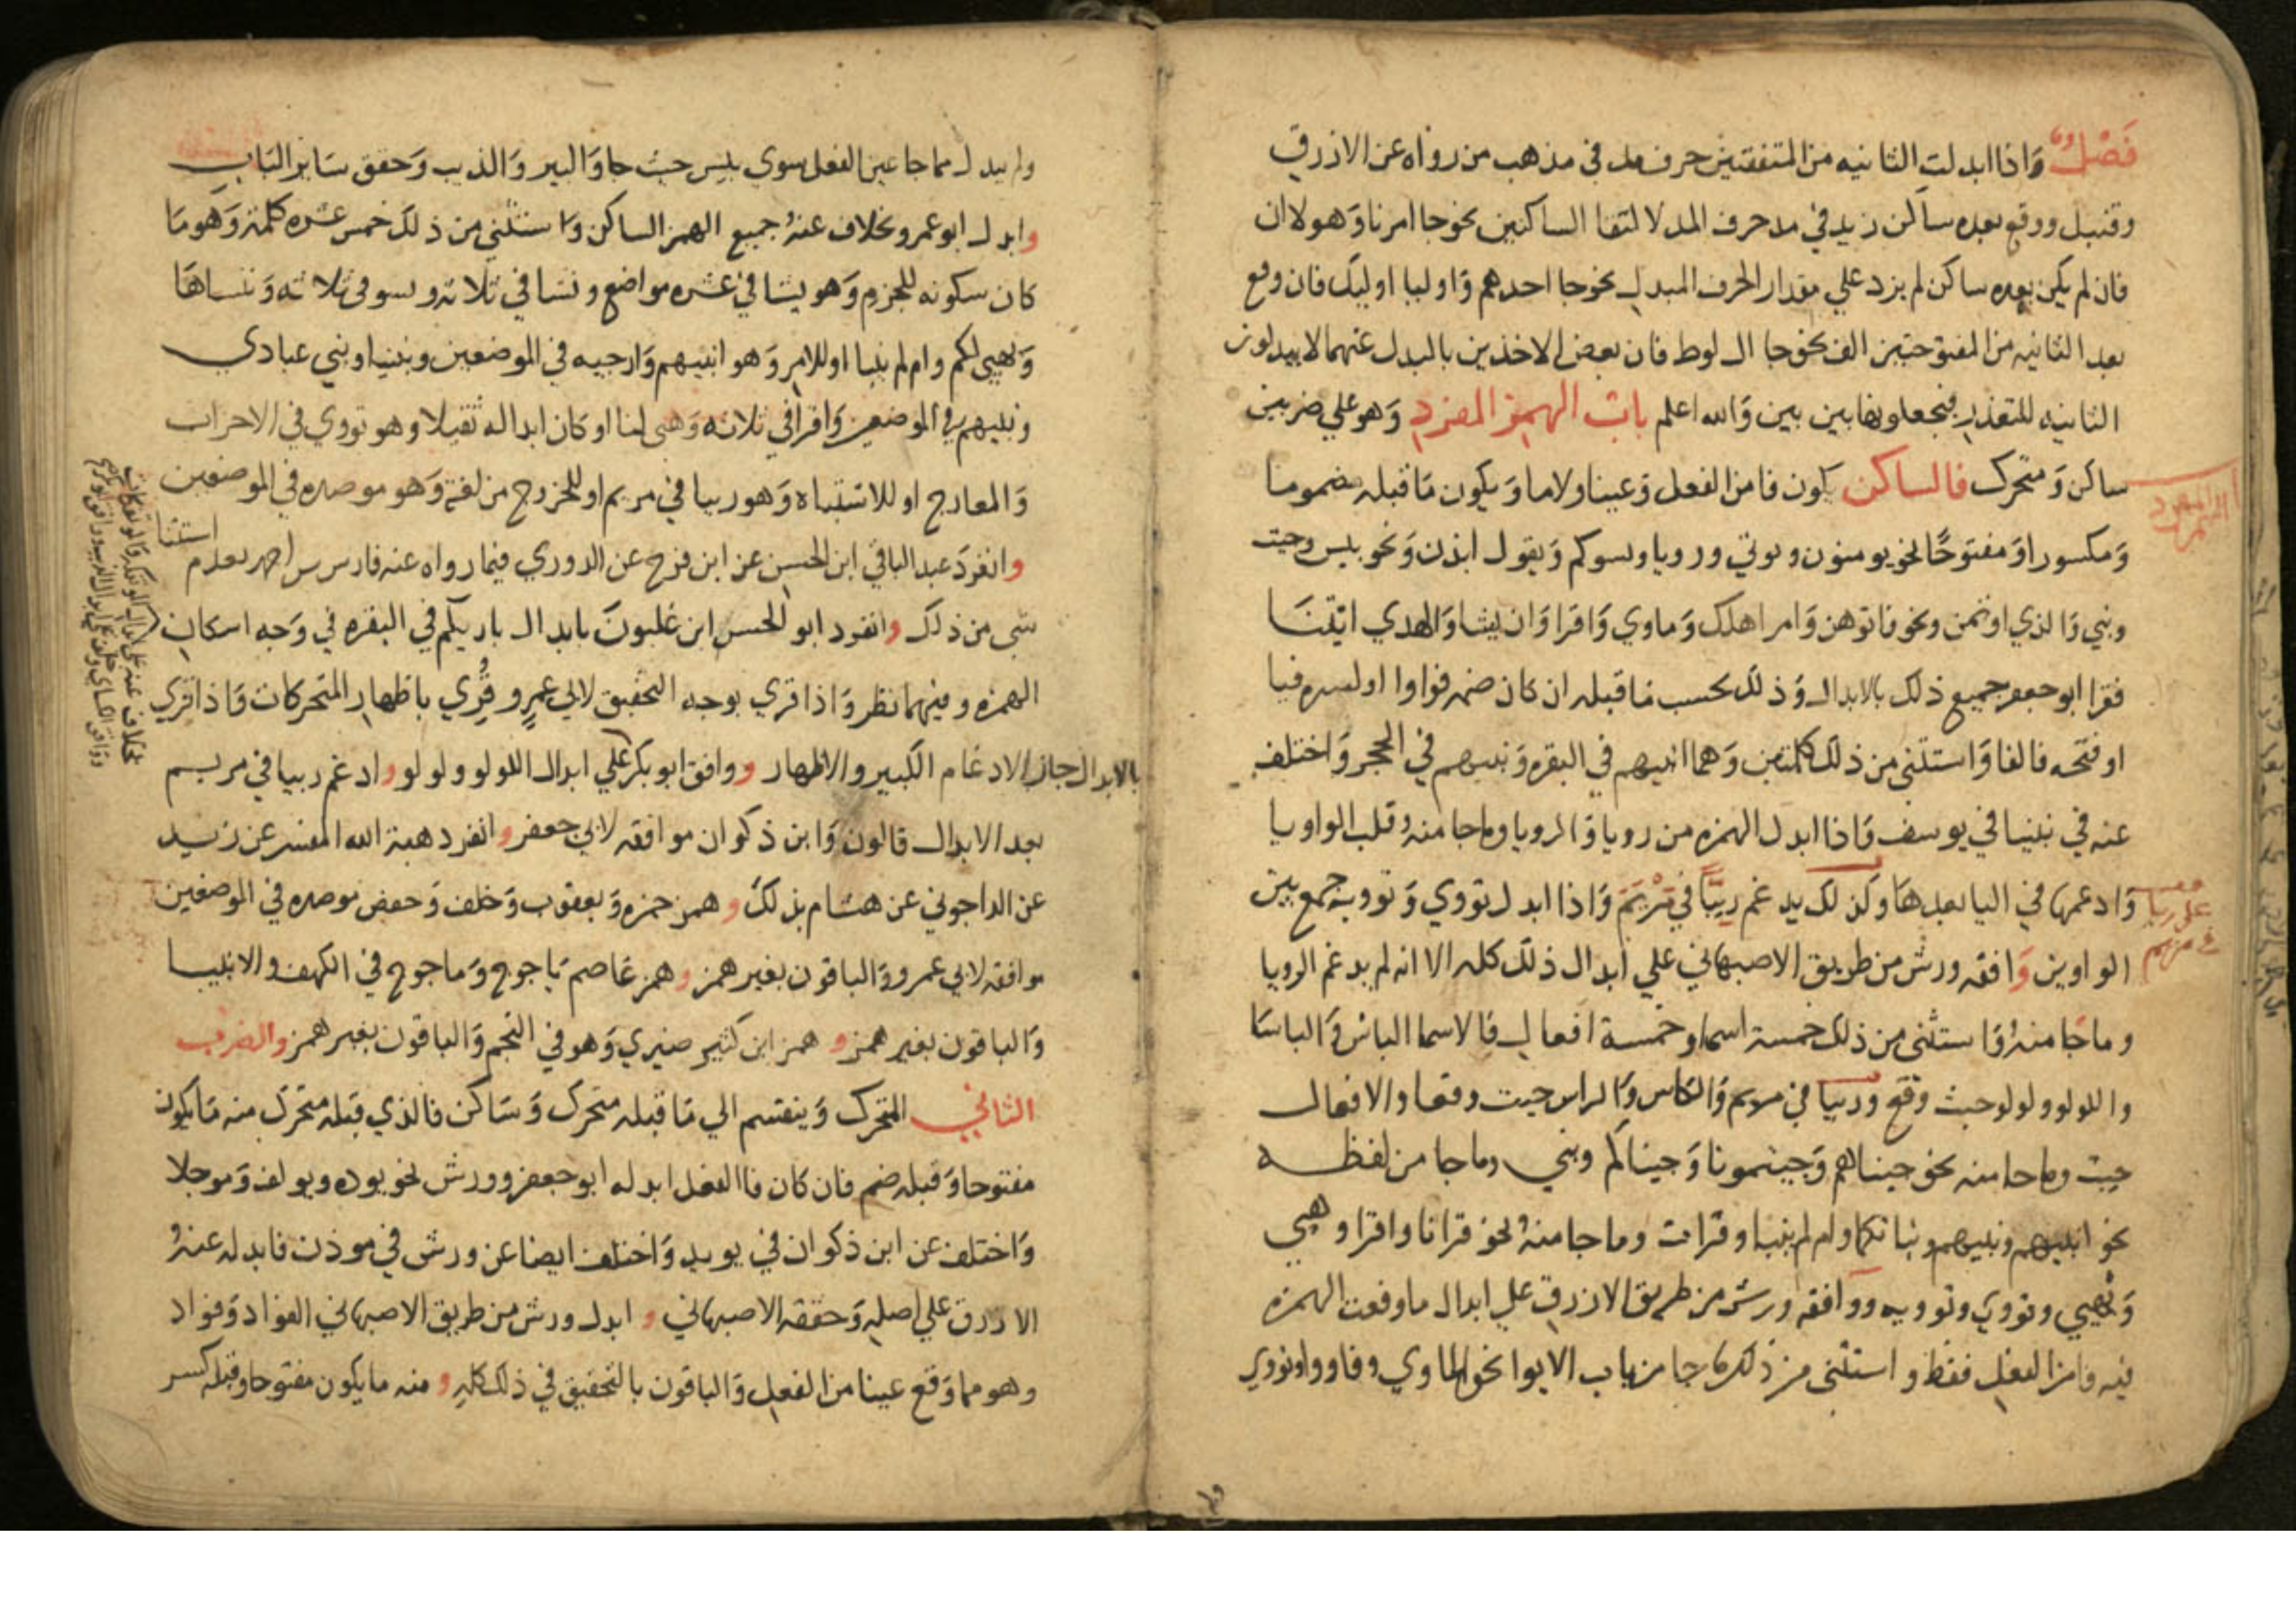 فَصْلٌ وَاذا ابدلت الثانيه من المتفقتين حرف مد في مذهب من رواه عن الازرق
وقنبل ووقع بعده ساكن زيد في مد حرف المد لالتقا الساكنين نحو جا امرنا وَهولا ان
فان لم يكن بعده ساكن لم يزد علي مقدار الحرف المبدل نحو جا احدهم وَاوليا اوليك فان وقع
بعد الثانيه من المفتوحتين الف نحو جا ال لوط فان بعض الاخذين بالبدل عنهما لا يبدلون
الثانيه للتعذر فيجعلونها بين بين وَالله اعلم باب الهمز المفرد وَهو علي ضربين
ساكن وَمتحرك فالساكن يكون فا من الفعل وَعينا ولاما وَيكون مَا قبله مضموما
وَمكسورا وَمفتوحًا نحو يومنون وتوتي ورويا وتسوكم وَيقول ايذن وَنحو بيس وجيت
ونبي وَالذي اوتمن ونحو فاتوهن وَامر اهلك وَماوي وَاقرا وَان يشا وَالهدي ايتنَا
فقرا ابو جعفر جميع ذلك بالابدال وَذلك بحسب مَا قبله ان كان ضمه فواوا او كسره فيا
او فتحه فالفا وَاستثني من ذلك كلمتين وَهما انبيهم في البقره وَنبيهم في الحجر وَاختلف
عنه في نبينا في يوسف وَاذا ابدل الهمزه من رويا وَالرويا وماجا منه وقلب الواو يا
وَادغمها في اليا بعدها وكذلك يدغم رِيًّا في مَرْيَمَ وَاذا ابدل تووي وَتوويه جمع بين
الواوين وَافقه ورش من طريق الاصبهاني علي ابدال ذلك كله الا انه لم يدغم الرويا
وماجَا منه وَاستثني من ذلك خمسة اسما وخمسة افعال فالاسما الباس وَالباسَا
واللولو ولولو حيث وقع وريا في مريم وَالكاس وَالراس حيت وقعا والافعال
جيت وماجا منه نحو جيناهم وَجيتمونا وَجيناكم ونبي وماجا من لفظه
نحو انبيهم ونبيهم ونباتكما وام لم ينبا وقرات وماجا منه نحو قرانا واقرا وهيي
وَيهيي وتووي وتوويه ووافقه ورش من طريق الازرق علي ابدال ماوقعت الهمزه
فيه فا من الفعل فقط واستثني من ذلك ماجا من باب الايوا نحو الماوي وفاووا وتووي
الهمز المفرد
علي ريا
في مريم
ولم يبدل مما جا عين الفعل سوي بيس حيث جا وَالبير وَالذيب وَحقق سَاير الباب
وابدل ابو عمرو بخلاف عنهُ جميع الهمز الساكن وَاستثني من ذلك خمس عشره كلمة وَهو مَا
كان سكونه للجزم وَهو يشا في عشره مواضع ونشا في ثلاثه وتسو في ثلاثه وَننساهَا
وَيهيي لكم وام لم ينبا او للامر وَهو انبيهم وَارجيه في الموضعين ونبينا ونبي عبادي
ونبيهم في الموضعين وَاقرا في ثلاثه وَهيي لنا او كان ابداله ثقيلا وهو تووي في الاحزاب
وَالمعارج او للاشتباه وَهو ريا في مريم او للخروج من لغة وَهو موصده في الموضعين
وانفردَ عبد الباقي ابن الحسن عن ابن فرح عن الدوري فيما رواه عنه فارس بن احمد بعدم استثنا
شي من ذلك وانفرد ابو الحسن ابن غلبون بابدال باريكم في البقره في وَجه اسكان
الهمزه وفيهما نظر وَاذا قري بوجه التحقيق لابي عمرٍو قُرِي باظهار المتحركات وَاذا قري
بالابدال جاز الادغام الكبير والاظهار ووافق ابو بكر علي ابدال اللولو ولولو وادغم ريا في مريم
بعد الابدال قالون وَابن ذكوان موافقه لابي جعفر وانفرد هبة الله المفسر عن زيد
عن الداجوني عن هشام بذلك وهمز حمزه وَيعقوب وَخلف وَحفص موصده في الموضعين
موافقه لابي عمرو وَالباقون بغير همز وهمز عَاصم يَاجوج وَماجوج في الكهف والانبيا
وَالباقون بغير همز وهمز ابن كثير ضيزي وَهو في النجم وَالباقون بغير همز والضرب
الثاني المتحرك وَينقسم الي مَا قبله متحرك وَسَاكن فالذي قبله متحرك منه مَا يكون
مفتوحا وَقبله ضم فان كان فا الفعل ابدله ابو جعفر وورش نحو يوده ويولف وَموجلا
وَاختلف عن ابن ذكوان في يويد وَاختلف ايضا عن ورش في موذن فابدله عنهُ
الازرق علي اصله وَحققه الاصبهاني وابدل ورش من طريق الاصبهاني الفواد وَفواد
وهو مما وَقع عينا من الفعل وَالباقون بالتحقيق في ذلك كله ومنه ما يكون مفتوحا وقبله كسر